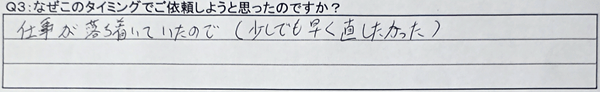 Q3:なぜこのタイミングでご依頼しようと思ったのですか?
仕事が落ち着いていたので(少しでも早く直したかった)